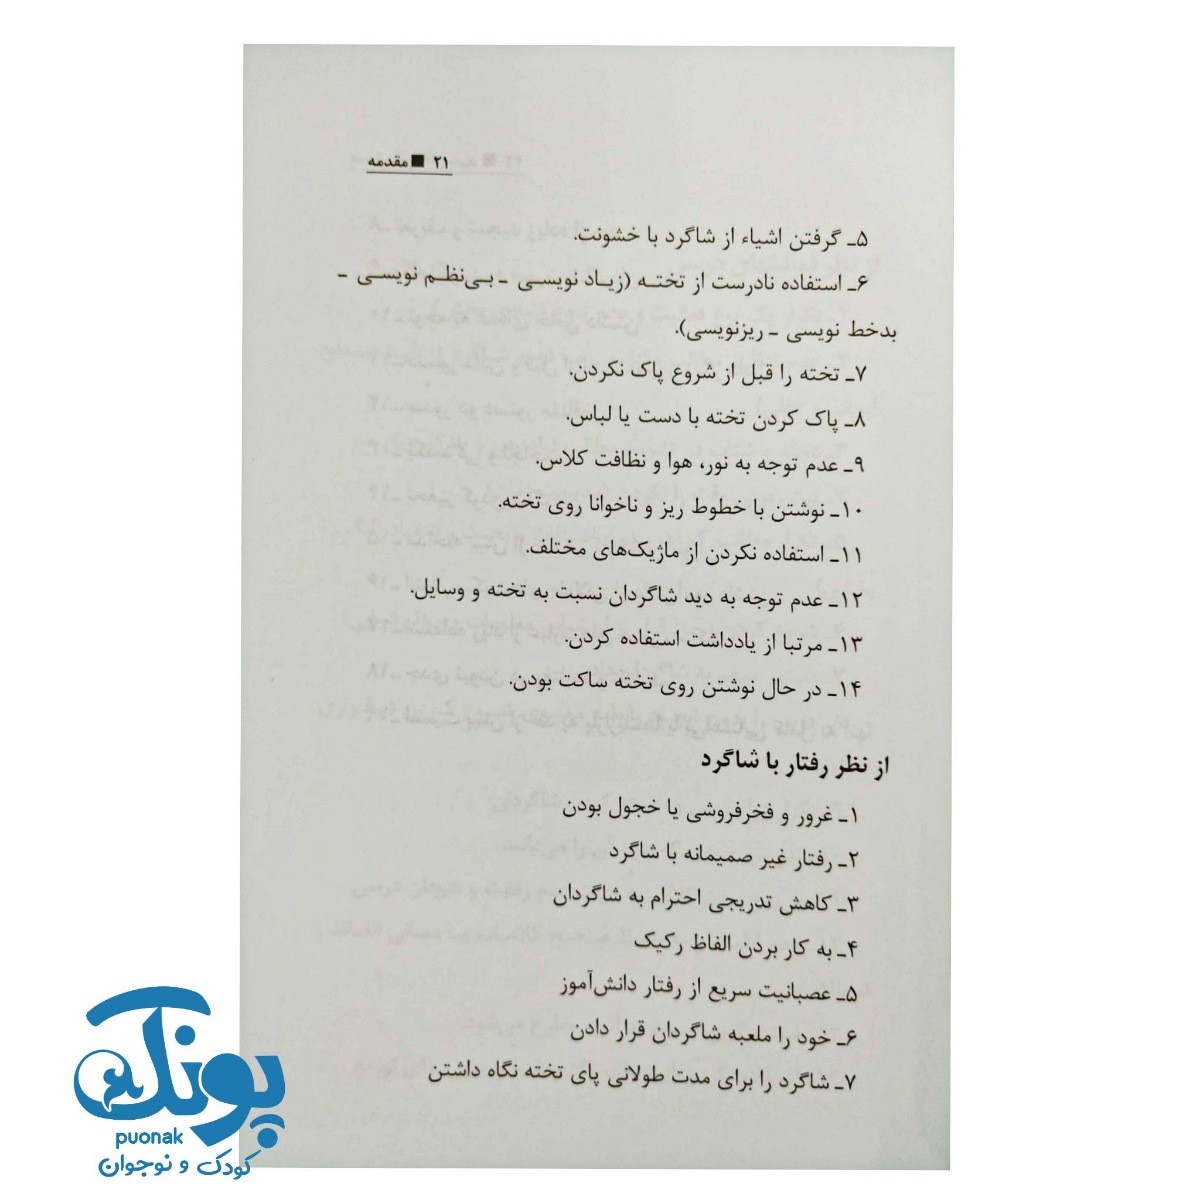 ۲۱ ■ مقدمه
۵ـ گرفتن اشیاء از شاگرد با خشونت.
۶ـ استفاده نادرست از تخته (زیاد نویسی ـ بی‌نظم نویسی ـ
بدخط نویسی ـ ریزنویسی).
۷ـ تخته را قبل از شروع پاک نکردن.
۸ـ پاک کردن تخته با دست یا لباس.
۹ـ عدم توجه به نور، هوا و نظافت کلاس.
۱۰ـ نوشتن با خطوط ریز و ناخوانا روی تخته.
۱۱ـ استفاده نکردن از ماژیک‌های مختلف.
۱۲ـ عدم توجه به دید شاگردان نسبت به تخته و وسایل.
۱۳ـ مرتبا از یادداشت استفاده کردن.
۱۴ـ در حال نوشتن روی تخته ساکت بودن.
از نظر رفتار با شاگرد
۱ـ غرور و فخرفروشی یا خجول بودن
۲ـ رفتار غیر صمیمانه با شاگرد
۳ـ کاهش تدریجی احترام به شاگردان
۴ـ به کار بردن الفاظ رکیک
۵ـ عصبانیت سریع از رفتار دانش‌آموز
۶ـ خود را ملعبه شاگردان قرار دادن
۷ـ شاگرد را برای مدت طولانی پای تخته نگاه داشتن
پونک
puonak
کودک و نوجوان